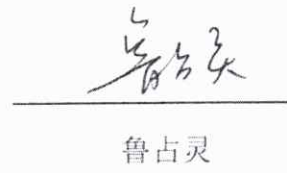 鲁占灵
鲁占灵